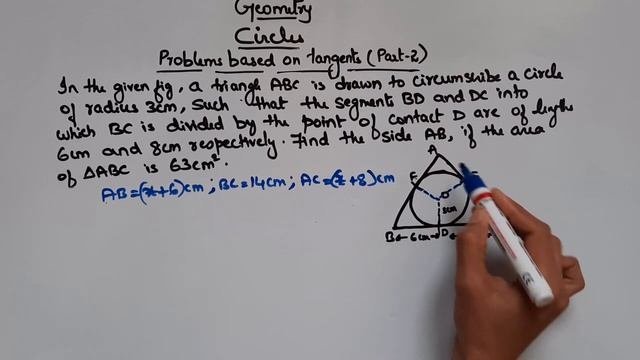 Geometry
Circles
Problems based on tangents (Part-2)
In the given fig, a triangle ABC is drawn to circumscribe a circle
of radius 3cm, such that the segments BD and DC into
which BC is divided by the point of contact D are of lengths
6cm and 8cm respectively. Find the side AB, if the area
of ΔABC is 63cm².
AB=(x+6)cm; BC=14cm; AC=(x+8)cm
A
O
3cm
B 6cm D